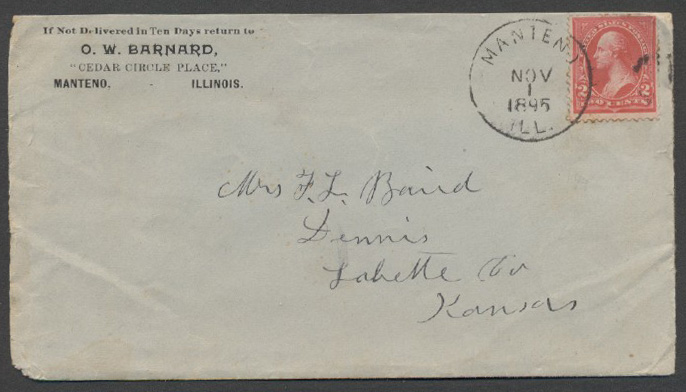 If Not Delivered in Ten Days return to
O. W. BARNARD,
"CEDAR CIRCLE PLACE,"
MANTENO. - ILLINOIS.
MANTENO
NOV
1
1895
ILL.
2 TWO CENTS 2
Mrs F. L. Baird
Dennis
Labette Co
Kansas